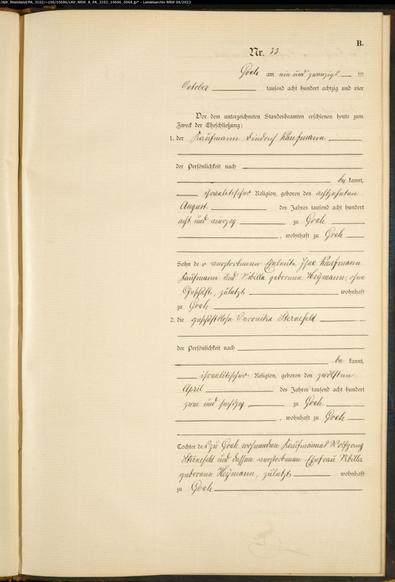 B.
Nr. 33
Goch am ein und zwanzigsten
October tausend acht hundert achtzig und vier
Vor dem unterzeichneten Standesbeamten erschienen heute zum
Zweck der Eheschließung:
1. der Kaufmann Kaufmann
der Persönlichkeit nach
be kannt,
israelitischer Religion, geboren den achtzehnten
August des Jahres tausend acht hundert
acht und zu Goch
, wohnhaft zu Goch
Sohn de Isac Kaufmann
Kaufmann und Sibilla geborene ohne
Geschäft, zuletzt wohnhaft
zu Goch
2. die geschäftslose Veronika Sternefeld
der Persönlichkeit nach
be kannt,
israelitischer Religion, geboren den zwölften
April des Jahres tausend acht hundert
zwei und fünfzig zu Goch
, wohnhaft zu Goch
Tochter des zu Goch wohnenden Kaufmanns Wolfgang
Sternefeld und dessen verstorbenen Ehefrau Sibilla
geborene zuletzt wohnhaft
zu Goch